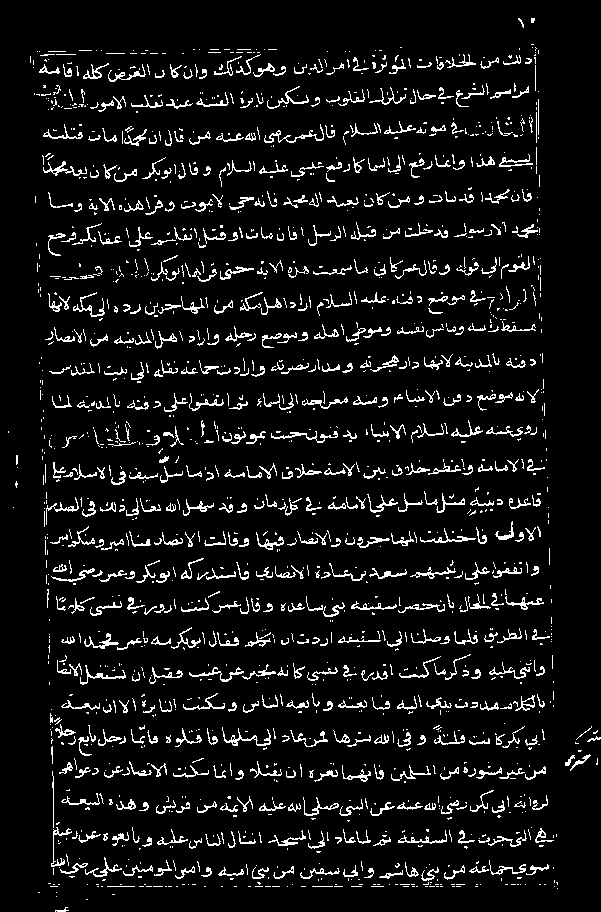 ١٠
ذلك من الخلافات المؤثرة في امر الدين وهو كذلك وان كان الغرض كله اقامة
مراسم الشرع في حال تزلزل القلوب وتسكين نايرة الفتنة عند تقلب الامور الخلاف
الثالث في موته عليه السلام قال عمر رضي الله عنه من قال ان محمدا مات قتلته
بسيفي هذا وانما رفع الى السما كما رفع عيسى عليه السلام وقال ابوبكر من كان يعبد محمدا
فان محمدا قد مات ومن كان يعبد اله محمد فانه حي لا يموت وقرا هذه الاية وما
محمد الا رسول قد خلت من قبله الرسل افان مات او قتل انقلبتم على اعقابكم فرجع
القوم الى قوله وقال عمر كاني ما سمعت هذه الاية حتى قراها ابوبكر الخلاف
الرابع في موضع دفنه عليه السلام اراد اهل مكة من المهاجرين رده الى مكه لانها
مسقط راسه ومانس نفسه وموطي اهله وموضع رحله واراد اهل المدينه من الانصار
دفنه بالمدينة لانها دار هجرته ومدار نصرته وارادت جماعة نقله الى بيت المقدس
لانه موضع دفن الانبياء ومنه معراجه الى السماء ثم اتفقوا على دفنه بالمدينه لما
روي عنه عليه السلام الانبياء يدفنون حيث يموتون الخلاف الخامس
في الامامة واعظم خلاف بين الامة خلاف الامامه اذ ما سل سيف في الاسلام على
قاعده دينية مثل ما سل على الامامة في كل زمان وقد سهل الله تعالى ذلك في الصدر
الاول فاختلفت المهاجرون والانصار فيها وقالت الانصار منا امير ومنكم امير
واتفقوا على رئيسهم سعد بن عبادة الانصاري فاستدركه ابوبكر وعمر رضي الله
عنهما في الحال بان حضرا سقيفه بني ساعده وقال عمر كنت ازور في نفسي كلاما
في الطريق فلما وصلنا الى السقيفه اردت ان اتكلم فقال ابوبكر مه يا عمر فحمد الله
واثنى عليه وذكر ما كنت اقدره في نفسي كانه يخبر عن غيب وقبل ان تشتغل الانصار
بالكلام مددت يدي اليه فبايعته وبايعه الناس وسكنت النايرة الا ان بيعة
ابي بكر كانت فلتة وقى الله شرها فمن عاد الى مثلها فاقتلوه فايما رجل بايع رجلا
من غير مشورة من المسلمين فانهما تغرة ان يقتلا وانما سكت الانصار عن دعواهم
لرواية ابي بكر رضي الله عنه عن النبي صلى الله عليه الايمة من قريش وهذه البيعة
هي التي جرت في السقيفة ثم لما عاد الى المسجد انثال الناس عليه وبايعوه عن رغبة
سوى جماعة من بني هاشم وابي سفين من بني امية وامير المومنين علي رضي الله